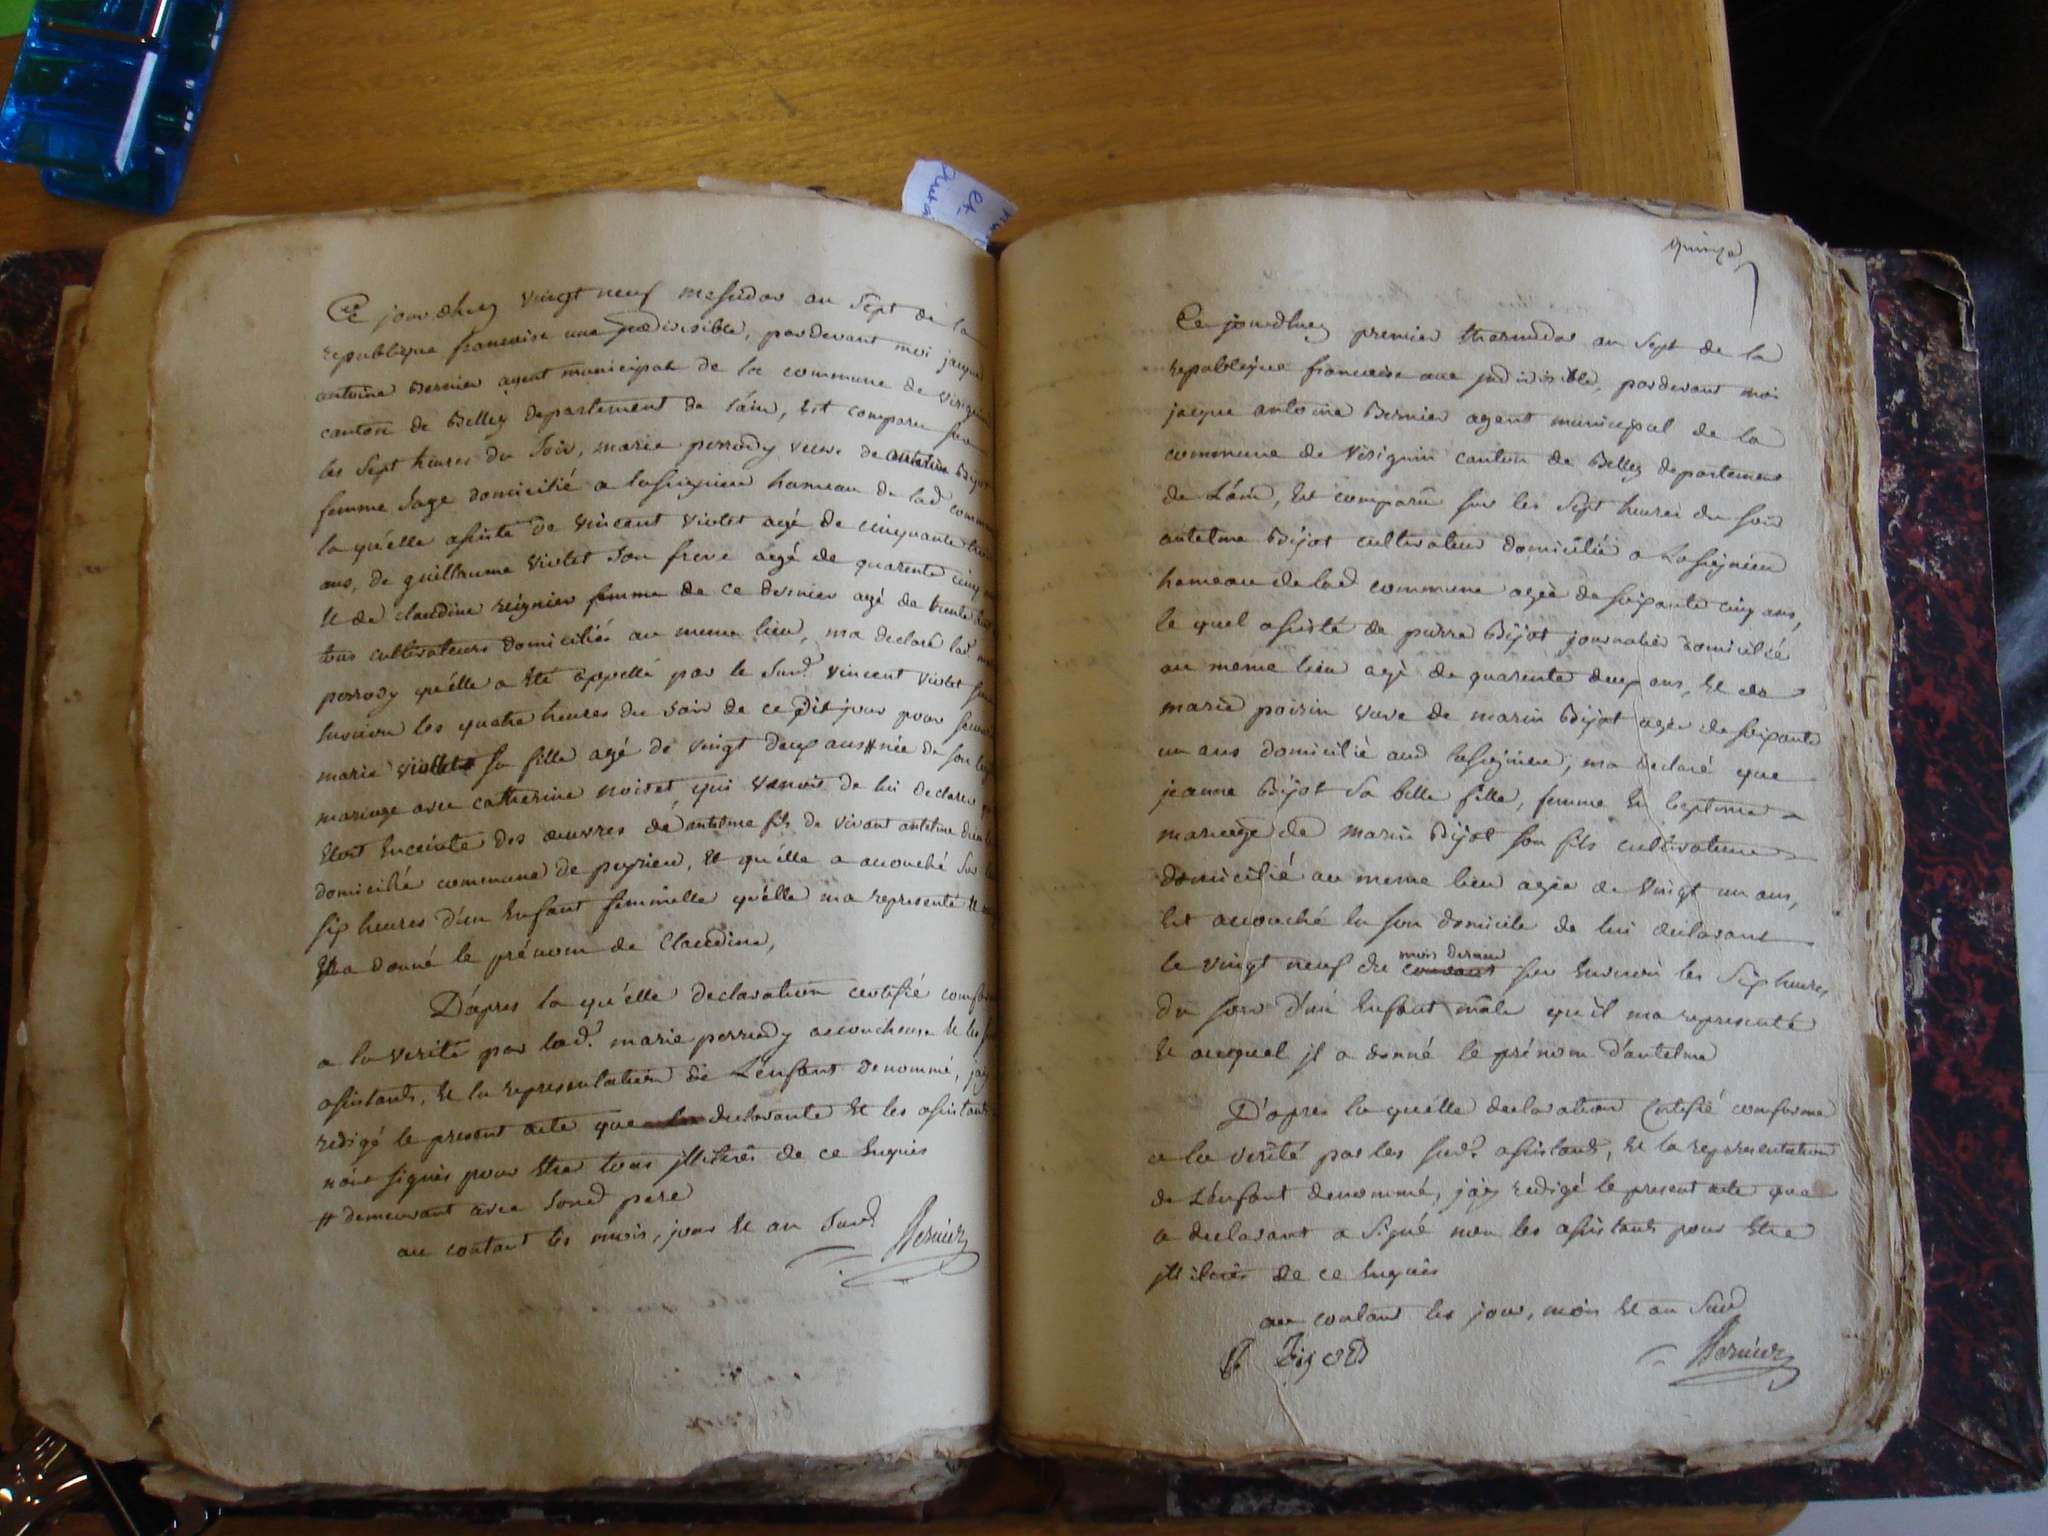 Ce jourdhuy vingt neuf messidor an sept de la
republique francaise une indivisible, pardevant moi jacque
antoine Bernier agent municipal de la commune de
canton de Belley departement de l'ain, Est comparu
les sept heures du soir, marie perrody veuve de antoine
femme sage domicilié a hameau de lad
la qu'elle assisté de vincent violet agé de cinquante
ans, de guillaume violet son frere agé de quarente cinq
Et de claudine reignier femme de ce dernier agé de trente
tous cultivateurs domiciliés au meme lieu, ma declaré lad
perrody qu'elle a été appellé par le sud. vincent violet
environ les quatre heures du soir de ce dit jour pour
marie violet sa fille agé de vingt deux ans # née de son
mariage avec catherine noiret, qui venoit de lui declarer
Etoit Enceinte des œuvres de antelme fils de vivant antelme
domicilié commune de peyrieu, Et qu'elle a acouché sur
six heures d'un Enfant feminelle qu'elle ma representé Et
Et a donné le prénom de Claudine,
D'apres la qu'elle declaration certifié
a la verité par lad. marie perrody acoucheuse Et les
assistants, Et la representation de L'enfant denommé, j'ay
redigé le present acte que declarante Et les assistants
n'ont signés pour Etre tous illiterés de ce Enquis
# demeurant avec sond pere
au contant les mois, jour Et an sud.
Bernier
quinze
Ce jourdhuy premier thermidor an sept de la
republique francaise une indivisible, pardevant moi
jacque antoine Bernier agent municipal de la
commune de Virignin canton de Belley departement
de L'ain, Est comparu sur les sept heures du soir
antelme Bijot cultivateur domicilié a
hameau de lad commune agée de soixante cinq ans,
le quel assisté de pierre Bijot journalier domicilié
au meme lieu agé de quarente deux ans, Et de
marie poirin veuve de marin Bijot agée de soixante
un ans domicilié aud, ma declaré que
jeanne Bijot sa belle fille, femme En legitime
mariage de marin Bijot son fils cultivateur
domicilié au meme lieu agée de vingt un ans,
Est acouché En son domicile de lui declarant
mois dernier
le vingt neuf du courant sur Environ les six heures
du soir d'un Enfant mâle qu'il ma representé
Et auquel il a donné le prénom d'antelme
D'apres la qu'elle declaration certifié conforme
a la verité par les sud. assistants, Et la representation
de L'enfant denommé, j'ay redigé le present acte que
a declarant a signé non les assistants pour Etre
illiterés de ce Enquis
au contant les jour, mois Et an sud
Bernier